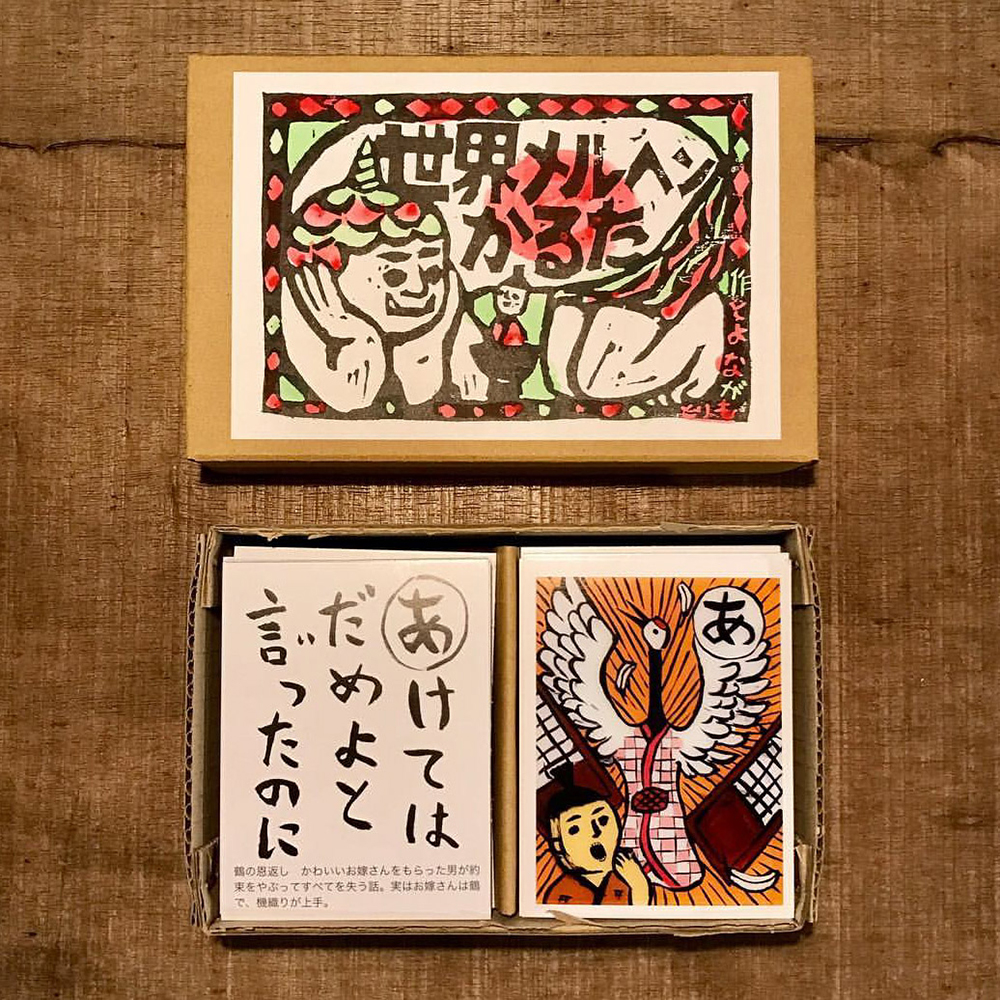 世界メルヘン
かるた
作とよなが
あけては
だめよと
言ったのに
鶴の恩返し　かわいいお嫁さんをもらった男が約
束をやぶってすべてを失う話。実はお嫁さんは鶴
で、機織りが上手。
あ